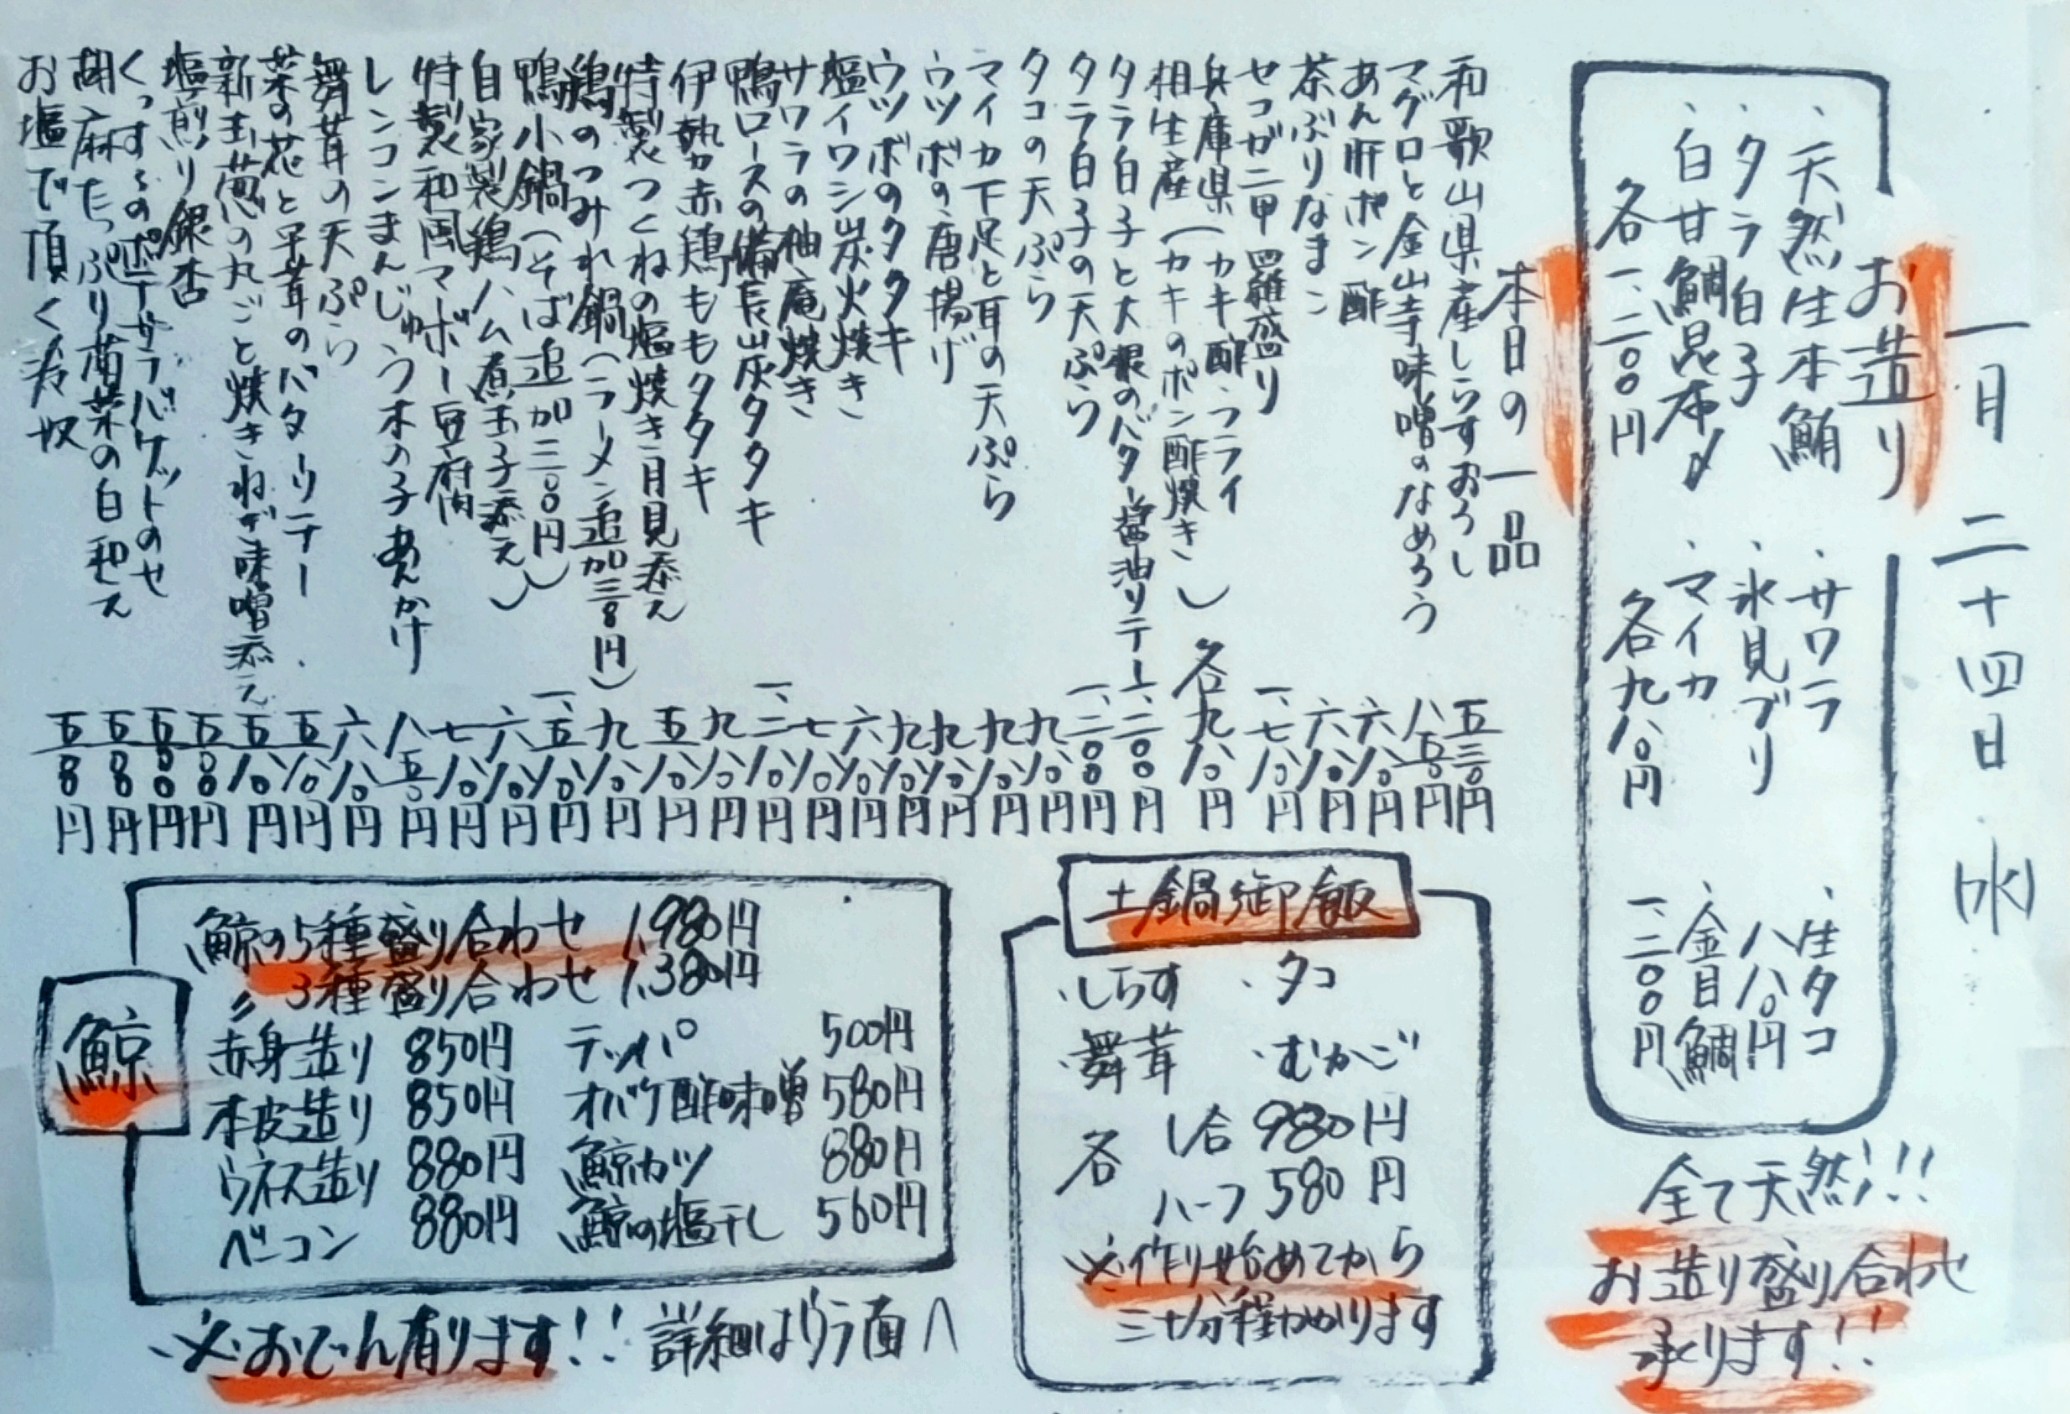 一月二十四日(水)
お造り
・天然生本鮪
・タラ白子
・白甘鯛昆布〆
各一、二〇〇円
・サワラ
・氷見ブリ
・マイカ
各九八〇円
・生タコ
八八〇円
・金目鯛
一、二〇〇円
全て天然!!
お造り盛り合わせ
承ります!!
本日の一品
和歌山県産しらすおろし 五三〇円
マグロと金山寺味噌のなめろう 八五〇円
あん肝ポン酢 六八〇円
茶ぶりなまこ 六八〇円
セコガニ甲羅盛り 一、七八〇円
兵庫県(カキ酢・フライ
相生産(カキのポン酢焼き) 各九八〇円
タラ白子と大根のバター醤油ソテー 一、二〇〇円
タラ白子の天ぷら 一、二〇〇円
タコの天ぷら 九八〇円
マイカ下足と耳の天ぷら 九八〇円
ウツボの唐揚げ 九八〇円
ウツボのタタキ 九八〇円
塩イワシ炭火焼き 六八〇円
サワラの柚庵焼き 七八〇円
鴨ロースの備長炭タタキ 一、二八〇円
伊勢赤鶏ももタタキ 九八〇円
特製つくねの塩焼き月見添え 五八〇円
鶏のつみれ鍋(ラーメン追加三〇〇円) 九八〇円
鴨小鍋(そば追加三〇〇円) 一、五八〇円
自家製鶏ハム煮玉子添え) 六八〇円
特製和風マボー豆腐 七八〇円
レンコンまんじゅう木の子あんかけ 八五〇円
舞茸の天ぷら 六八〇円
菜の花と平茸のバターソテー 五八〇円
新玉葱の丸ごと焼きねぎ味噌添え 五八〇円
塩煎り銀杏 五〇〇円
くずし のポテサラバケットのせ 五〇〇円
胡麻たっぷり菊菜の白和え 五〇〇円
お塩で頂く冷奴 五〇〇円
土鍋御飯
・しらす ・タコ
・舞茸 ・むかご
各 1合 980円
ハーフ 580円
※作り始めてから
三十分程かかります
鯨
鯨の5種盛り合わせ 1,980円
〃 3種盛り合わせ 1,380円
赤身造り 850円 テッパ 500円
本皮造り 850円 オバケ酢味噌 580円
ウネス造り 880円 鯨カツ 880円
ベーコン 880円 鯨の塩干し 560円
※おでん有ります!!詳細はウラ面へ